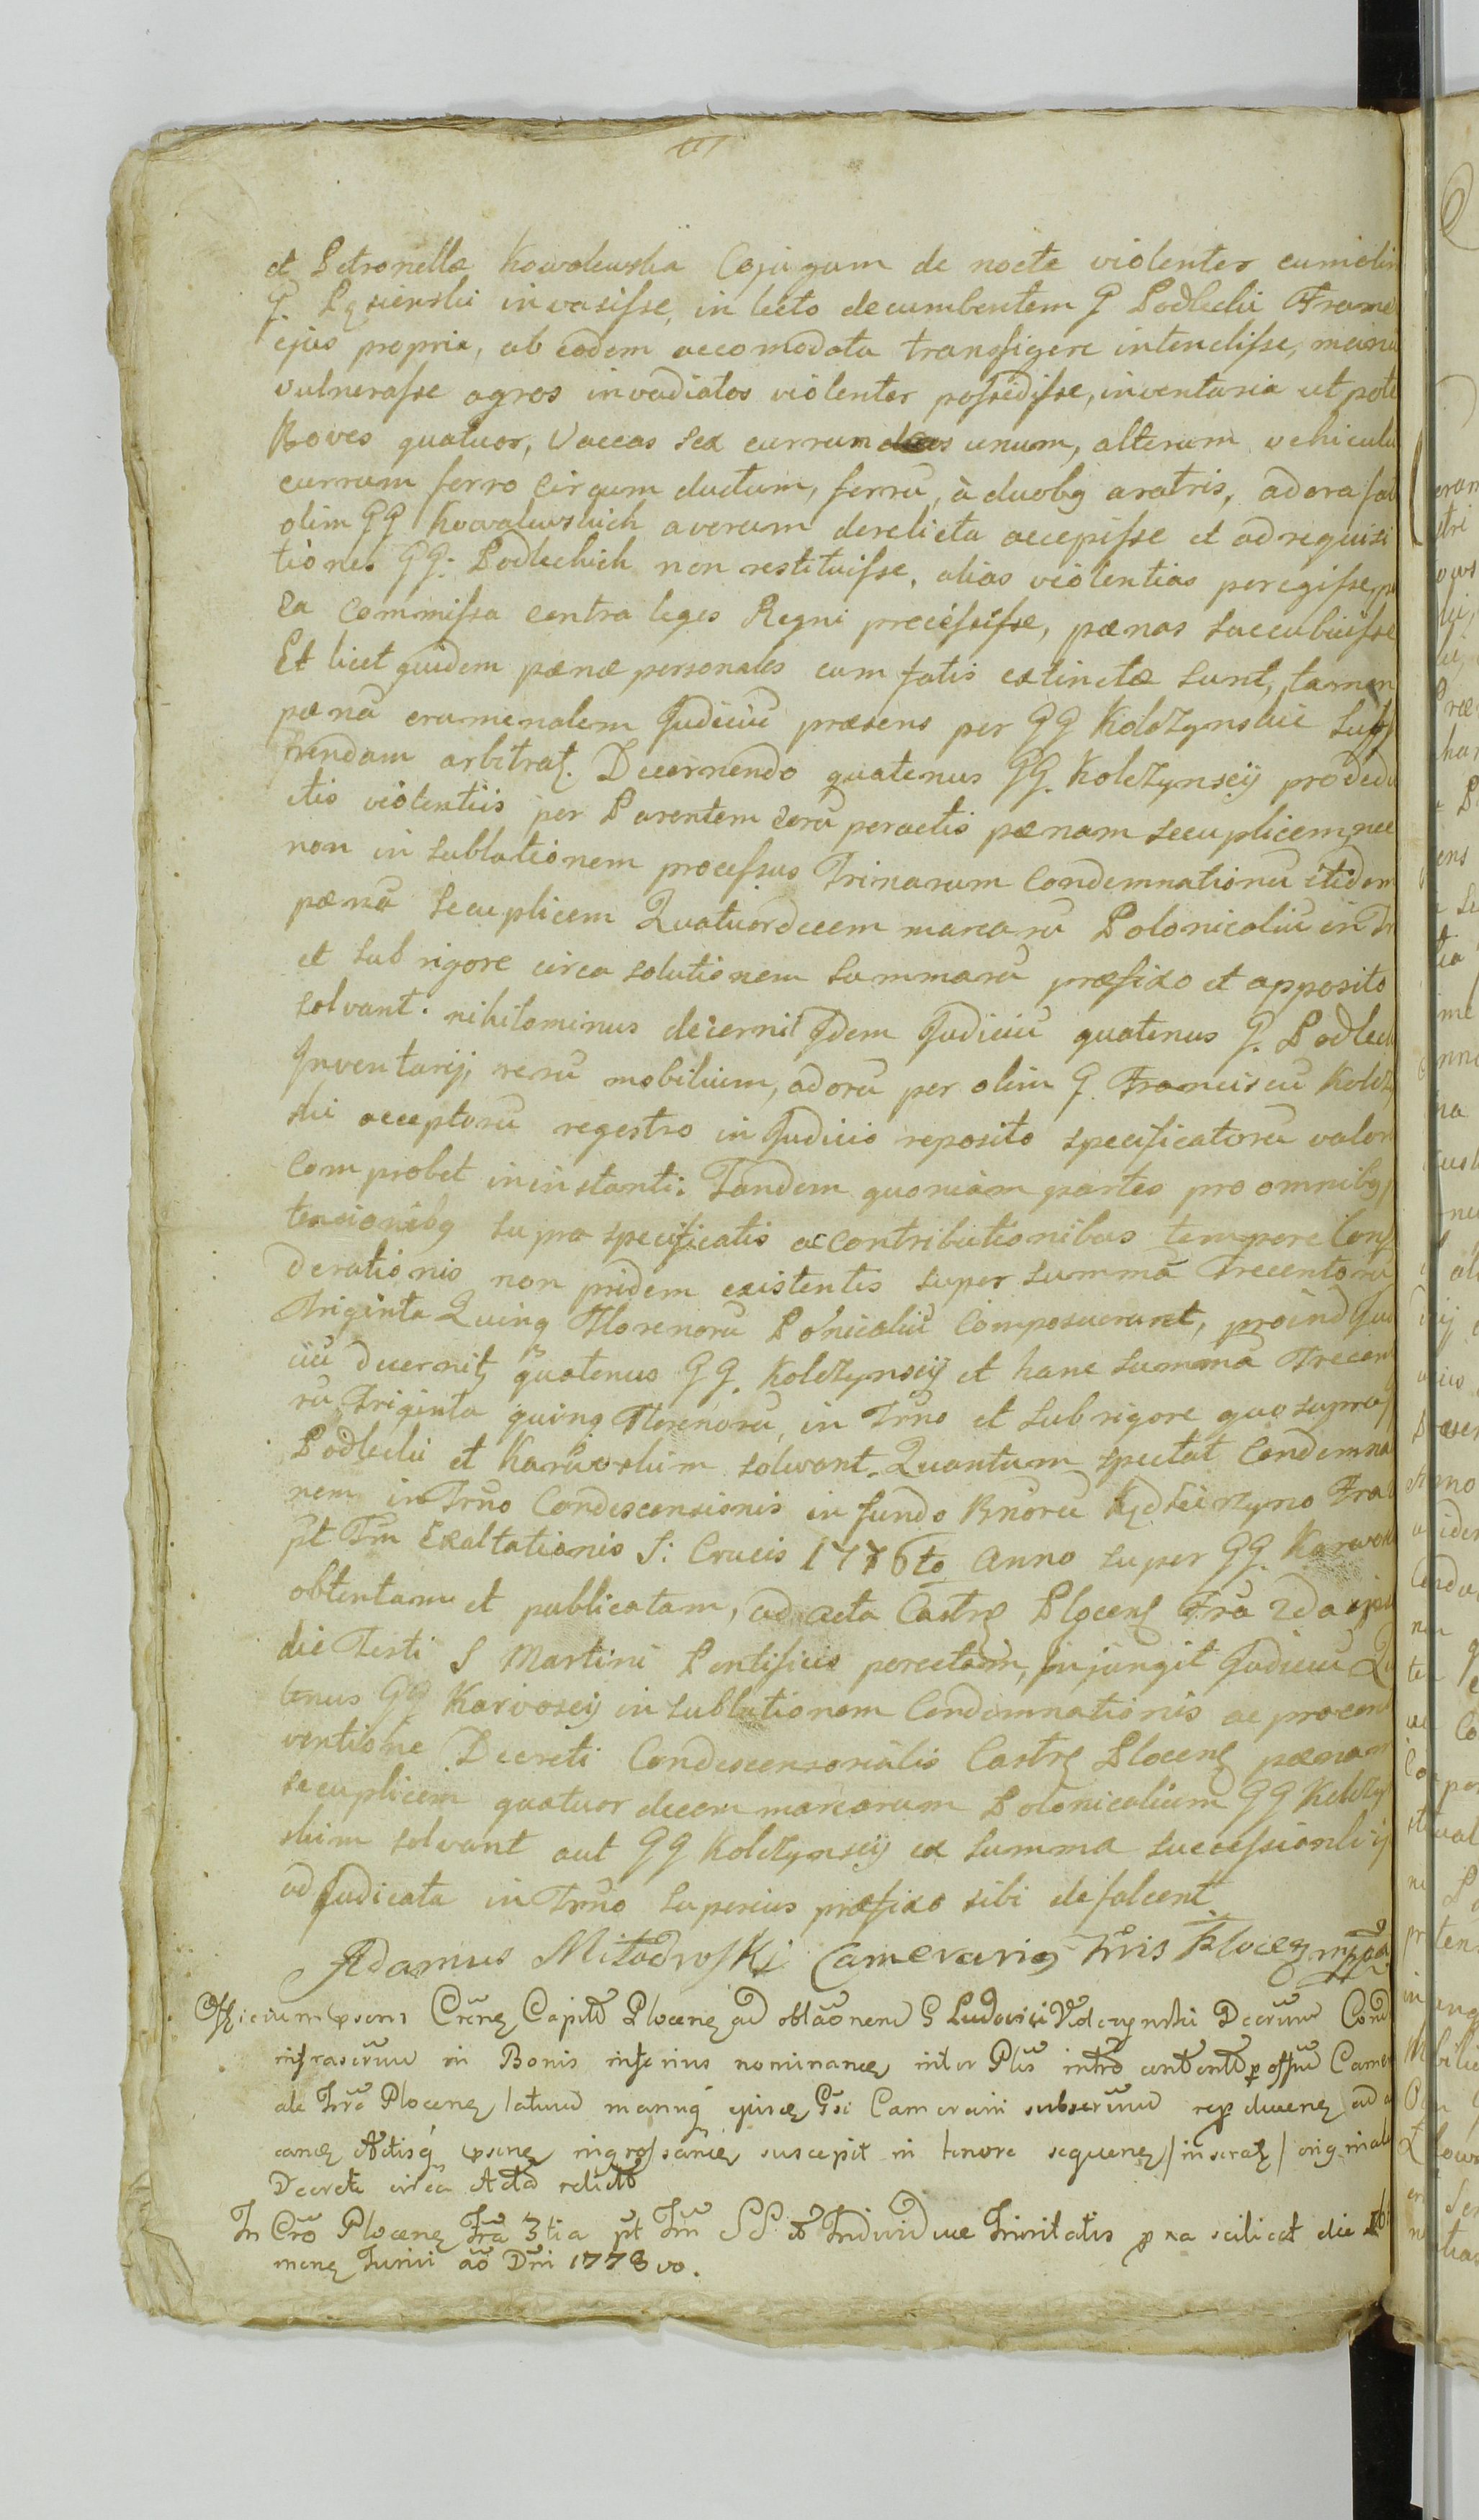 et Petronellæ Kowalewskia Cojugum de nocte violenter cum olim
G. Pęsienski invasisse, in lecto decumbentem G Podlecki Frame
ejus propria, ab eodem accomodata transfigere intendisse, manu
vulnerasse agros invadiatos violenter possedisse, inventaria ut pote
Boves quatuor, Vaccas sex currum unum, alterum vehiculu
currum ferro circum ductum, ferru, à duobg aratris, adora
olim GG Kowalewskich averum derelicta accepisse et ad requisi
tiones GG. Podleckich non restituisse, alias violentias peregisse,
ea commissa contra leges Regni præcessisse, pænas succubuisse
Et licet quidem pænæ personales cum fatis extinctæ sunt, tamen
pænã crumenalem Judiciũ præsens per GG Kolczynskie
frendam arbitrat. Decernendo quatenus GG. Kolczynscÿ pro dedu
ctis violentiis per Parentem eorũ peractis pænam secuplicem, nec
non in sublationem processus Trinarum Condemnationũ itidem
pænã secuplicem Quatuordecem marcarũ Polonicaliũ in
et sub rigore circa solutionem summarũ præfixo et apposito
solvant. nihilominus decernit Idem Judiciũ quatenus G. Podlec
Inventarij, rerũ mobilium, adorũ per olim G. Franciscũ Kolcz
ski acceptorũ regestro in Judicio reposito specificatorũ valor
comprobet in instanti. Tandem quoniam partes pro omnibg
tensionibg supra specificatis ac contributionibus tempore Conf
derationis non pridem existentis super summã Trecentorũ
Triginta Quinq Florenorũ Polnicaliũ Composuerunt, proind Jud
iciũ decernit, quatenus GG. Kolczynscij et hanc summã Trecen
rũ Triginta quinq Florenorũ, in Trno et sub rigore quo supra
Podlecki et Karwoskim solvant. Quantum spectat Condemna
nem in Trno Condescensionis in fundo Bnorũ Kędsierzyno Fra
pt Fm Exaltationis S: Crucis 1776to Anno super GG. Karwos
obtentam et publicatam, ad acta Castrę Plocenę Fra 2da
die Festi S Martini Pontificis porectam, Injungit Judiciũ Qu
tenus GG Karwoscij in sublationem Condemnationis ac pro con
ventione Decreti Condescensorialis Castrę Plocenę pænam
secuplicem quatuor decem marcarum Polonicalium GG Kolczyn
skim solvant aut GG Kolczynscij ex summa successionli
adjudicata in Trno superius præfixo sibi defalcent.
Adamus Miłodroski Camerarig Trris Płocen mppa
Officium psens Crēnę Capitō Plocenę ad oblãonem G Ludovici Kolczynski Decrum Cond
infrascrum in Bonis inferius nominanę inter Ptes intrõ contentõ p offm Camer
ale Trræ Plocenę latum manuq ejusdę Gsi Camerarii subscrum rep ducenę ad a
candę Actisq psenę ingrossandę suscepit in tenore sequenę / inserat / originale
Decreti circa Acta relictõ
In Crõ Plocenę Fra 3tia pt Fm SS et Individuæ Trinitatis p xa scilicet die
mensę Junii aõ Dni 1778vo.